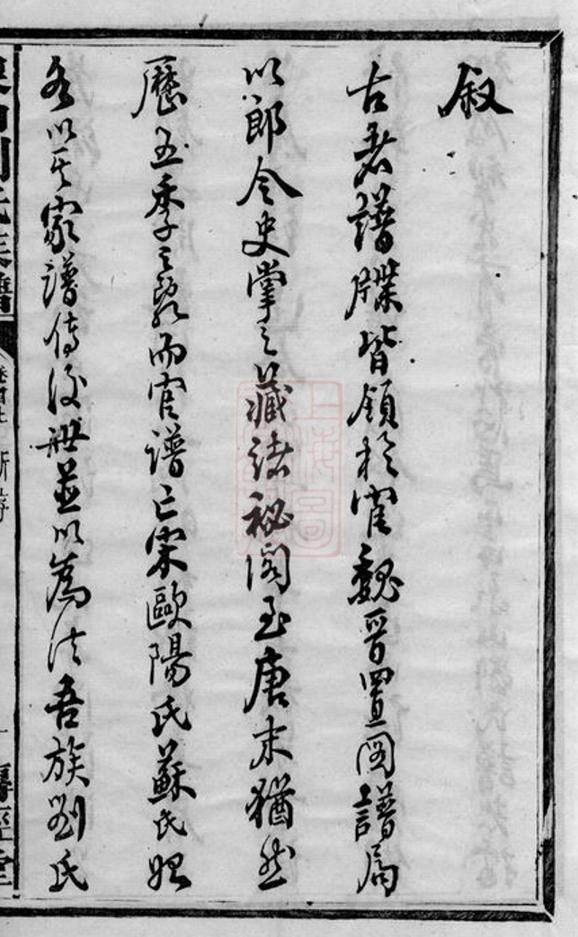 叙
古者譜牒皆領於官魏晉置圖譜局
以郎令史掌之藏諸秘閣至唐末猶然
歷五季之亂而官譜亡宋歐陽氏蘇氏始
各以其家譜傳後世並以為法吾族劉氏